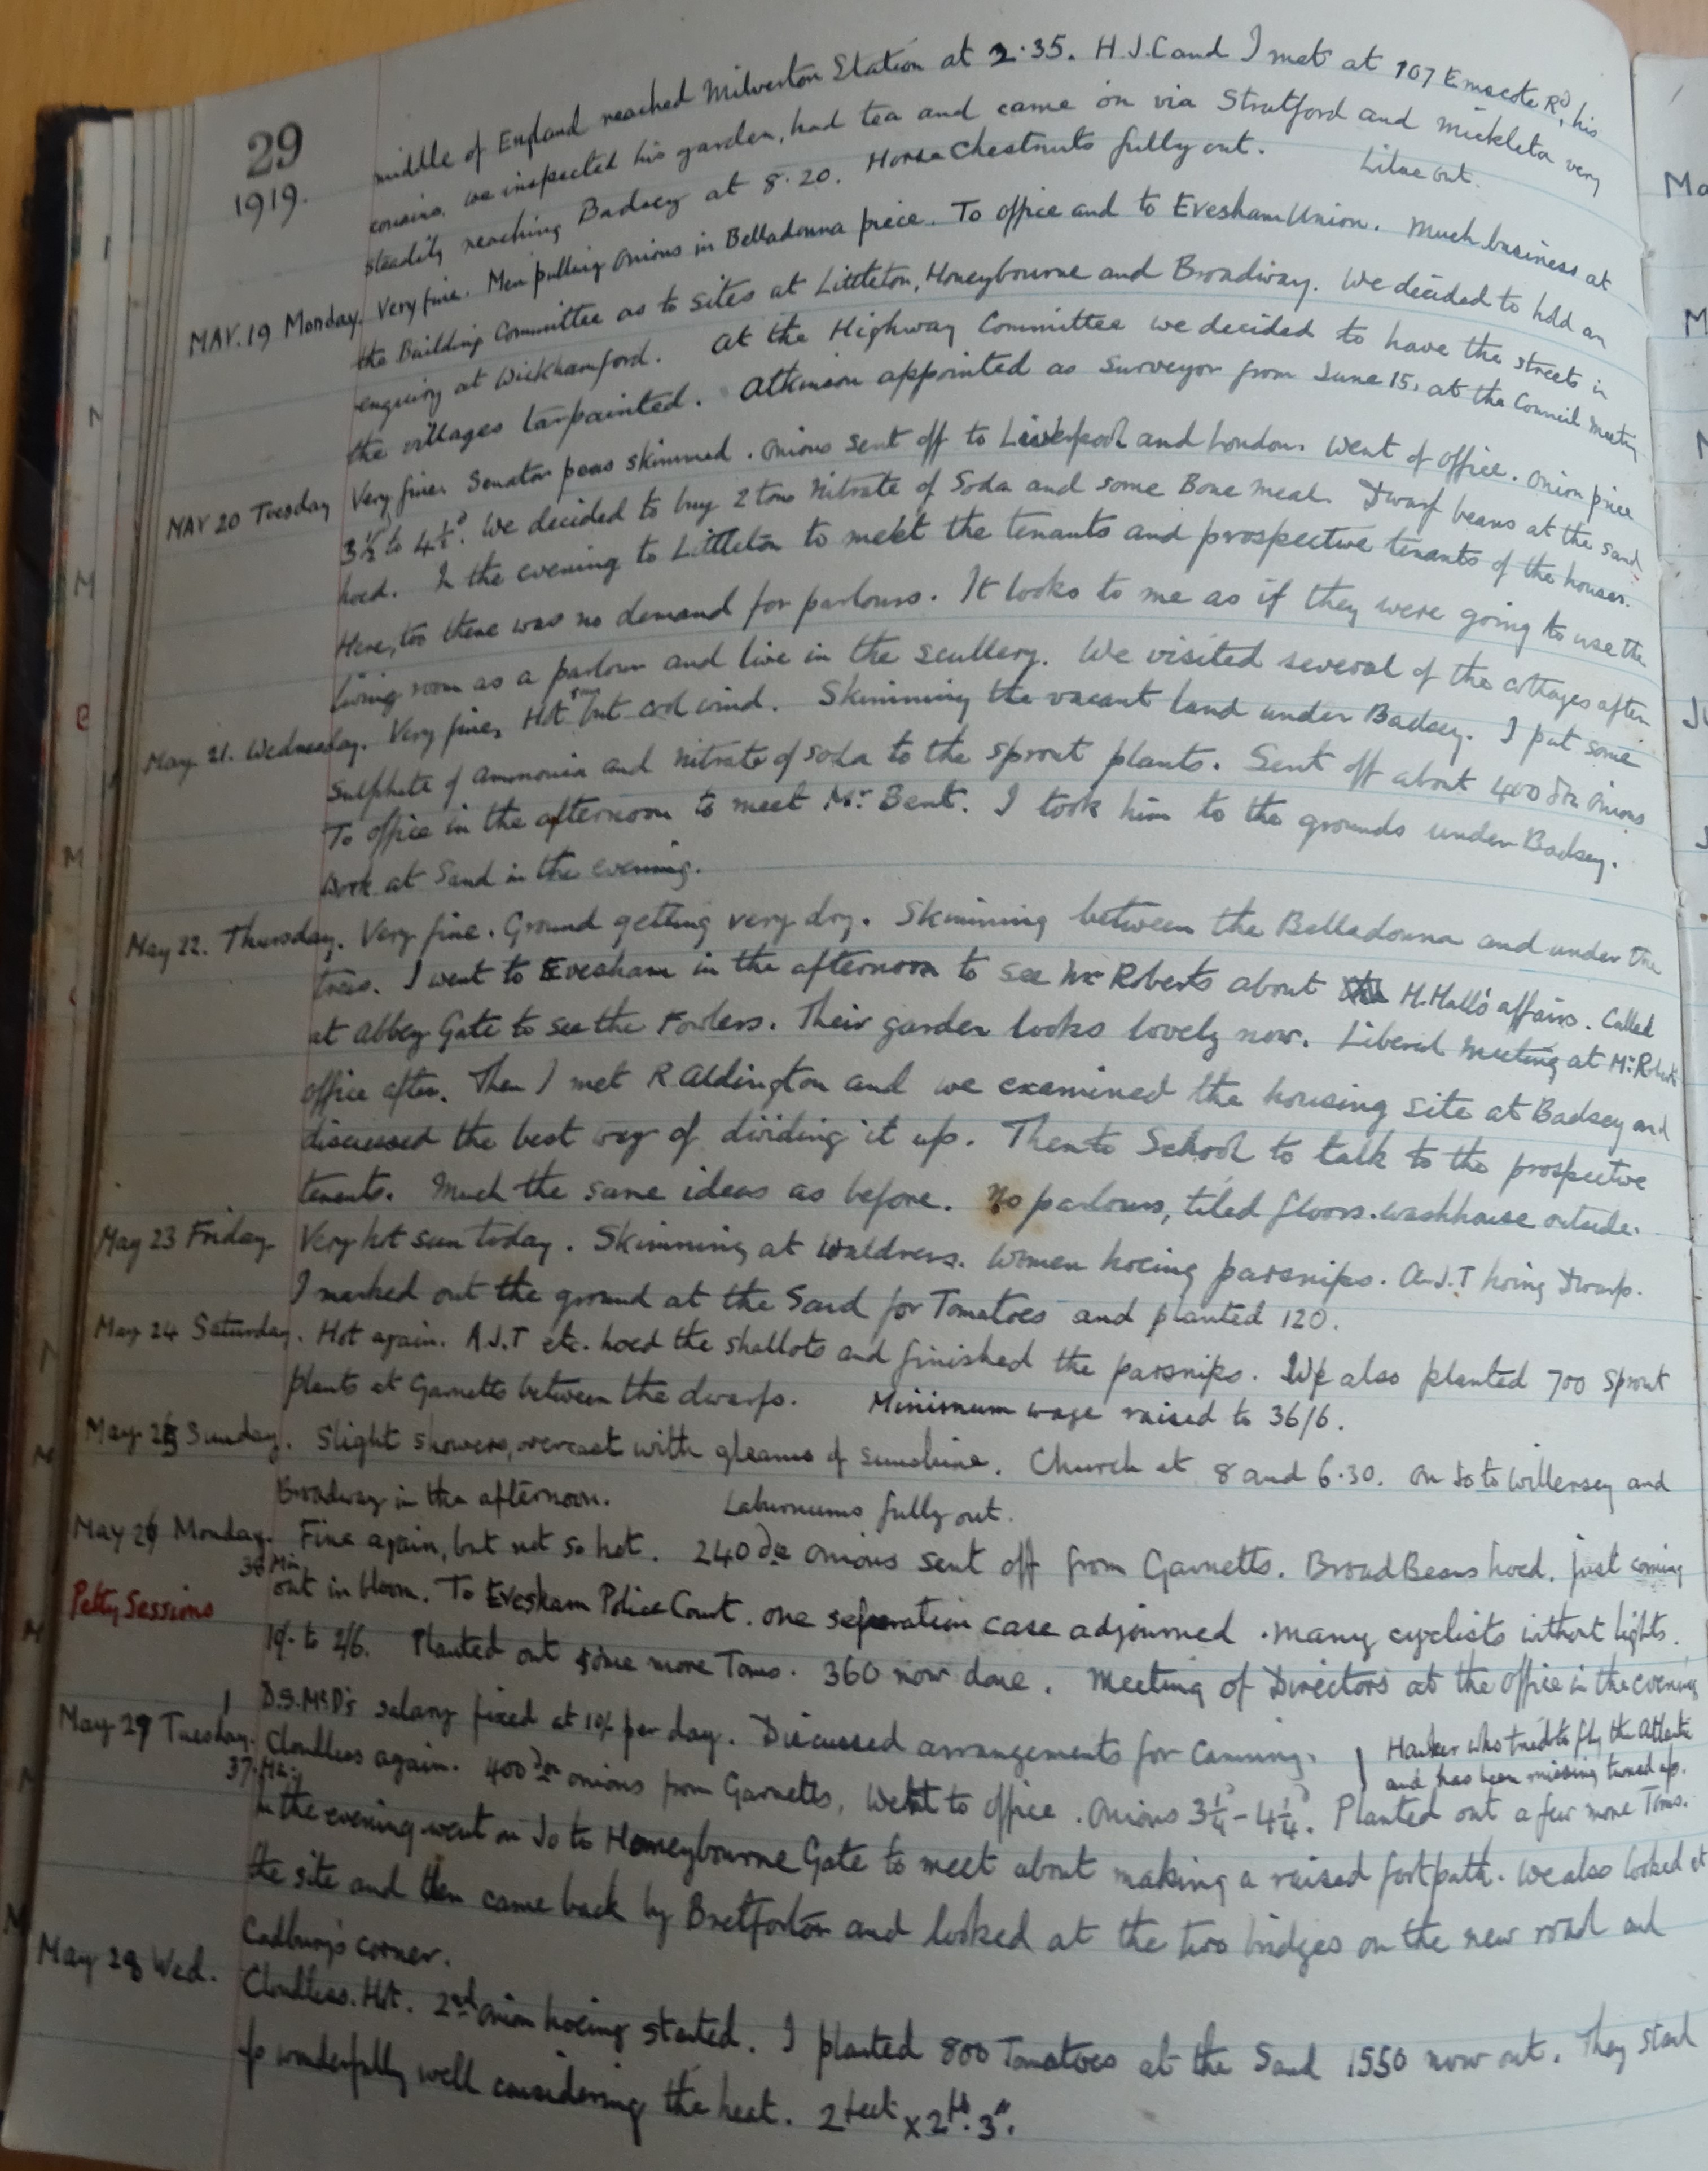 29
1919.
middle of England reached Milverton Station at 2.35. H.J.C and I met at 107 Emscote Rd, his
cousins, we inspected his garden, had tea and came on via Stratford and Mickleton very
steadily reaching Badsey at 8.20. Horse Chestnuts fully out. Lilac out.
MAY. 19 Monday. Very fine. Men pulling onions in Belladonna piece. To office and to Evesham Union. Much business at
the Building Committee as to sites at Littleton, Honeybourne and Broadway. We decided to hold an
enquiry at Wickhamford. At the Highway Committee we decided to have the streets in
the villages tarpainted. Atkinson appointed as Surveyor from June 15. at the Council Meeting
MAY 20 Tuesday Very fine. Senator peas skimmed. Onions sent off to Liverpool and London. Went of office. Onion price
3½ to 4½d. We decided to buy 2 tons Nitrate of Soda and some Bone meal. Dwarf beans at the sand
hoed. In the evening to Littleton to meet the tenants and prospective tenants of the houses.
Here, too there was no demand for parlours. It looks to me as if they were going to use the
living room as a parlour and live in the scullery. We visited several of the cottages after
May. 21. Wednesday. Very fine, Hot sun but cool wind. Skimming the vacant land under Badsey. I put some
Sulphate of ammonia and nitrate of soda to the sprout plants. Sent off about 400 doz onions
To office in the afternoon to meet Mr. Bent. I took him to the grounds under Badsey.
Work at Sand in the evening.
May 22. Thursday. Very fine. Ground getting very dry. Skimming between the Belladonna and under the
trees. I went to Evesham in the afternoon to see Mr Roberts about H. Hall's affairs. Called
at Abbey Gate to see the Fowlers. Their garden looks lovely now. Liberal Meeting at Mr. Roberts
office after. Then I met R Aldington and we examined the housing site at Badsey and
discussed the best way of dividing it up. Then to School to talk to the prospective
tenants. Much the same ideas as before. No parlours, tiled floors. washhouse outside.
May 23 Friday Very hot sun today. Skimming at Waldrens. Women hoeing parsnips. A.J.T hoing Dwarfs.
I marked out the ground at the Sand for Tomatoes and planted 120.
May 24 Saturday. Hot again. A.J.T etc. hoed the shallots and finished the parsnips. We also planted 700 Sprout
plants at Garnetts between the dwarfs. Minimum wage raised to 36/6.
May 25 Sunday. Slight showers, overcast with gleams of sunshine. Church at 8 and 6.30. On Jo to Willersey and
Broadway in the afternoon. Laburnums fully out.
May 26 Monday. Fine again, but not so hot. 240 doz onions sent off from Garnetts. Broad Beans hoed, just coming
36 Min
Petty Sessions out in bloom. To Evesham Police Court. One separation case adjourned. Many cyclists without lights.
10/- to 2/6. Planted out some more Toms. 360 now done. Meeting of Directors at the office in the evening
D.S. McD's salary fixed at 10/- per day. Discussed arrangements for Canning.
May 27 Tuesday. Cloudless again. 400 doz onions from Garnetts, Went to office. Onions 3¼ - 4¼d. Planted out a few more Toms.
Hawker who tried to fly the Atlantic
and has been missing turned up.
37.
In the evening went on Jo to Honeybourne Gate to meet about making a raised footpath. We also looked at
the site and then came back by Bretforton and looked at the two bridges on the new road and
Cadbury's corner.
May 28 Wed. Cloudless. Hot. 2nd onion hoeing started. I planted 800 Tomatoes at the Sand 1550 now out. They stand
up wonderfully well considering the heat. 2 feet x 2ft. 3".